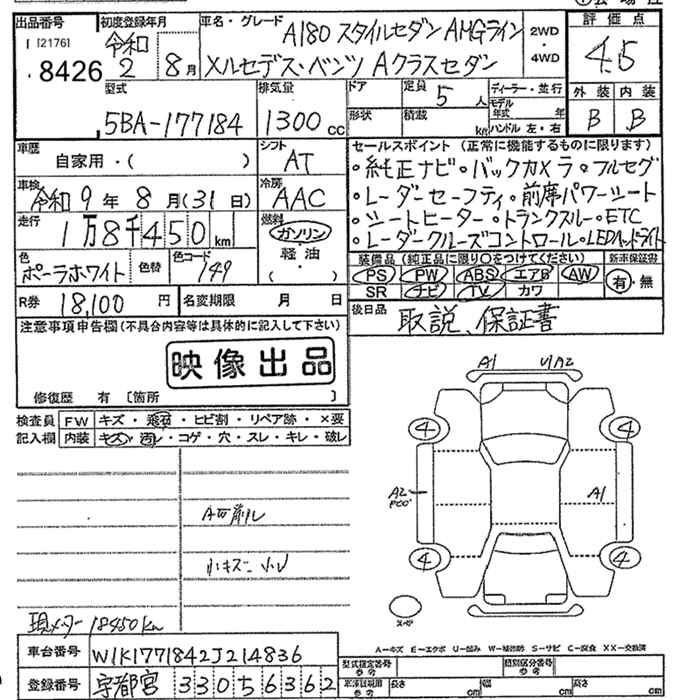 出品番号 初度登録年月 車名・グレード A180 スタイルセダン AMGライン 2WD・4WD 評価点
I21761 令和2年8月 メルセデス・ベンツ Aクラスセダン 4.5
8426
型式 排気量 ドア 定員 5人 ディーラー・並行 外装 内装
5BA-177184 1300cc 形状 積載 kg モデル年式 年 B B
ハンドル 左・右
車歴 シフト セールスポイント (正常に機能するものに限ります)
自家用・( ) AT ・純正ナビ・バックカメラ・フルセグ
車検 冷房 ・レーダーセーフティ・前席パワーシート
令和9年8月(31日) AAC ・シートヒーター・トランクスルー・ETC
走行 燃料 ・レーダークルーズコントロール・LEDヘッドライト
1万8千450km ガソリン・軽油・( )
色 色替 色コード 装備品 (純正品に限り○をつけてください) 新車保証書
ポーラホワイト 149 PS PW ABS エアB AW 有・無
SR ナビ TV カワ
R券 18,100円 名変期限 月 日 後日品 取説、保証書
注意事項申告欄 (不具合内容等は具体的に記入して下さい)
映像出品
修復歴 有 [箇所 ]
検査員 FW キズ・飛石・ヒビ割・リペア跡・×要
記入欄 内装 キズ・汚レ・コゲ・穴・スレ・キレ・破レ
A1 U1A2
4 4
A2 A1
4 4
削レ
小キズ 小U
現メーター 18450km
A-キズ E-エクボ U-凹み W-補修跡 S-サビ C-腐食 XX-交換済
車台番号 W1K1771842J214836
型式指定番号 参考 類別区分番号 参考
登録番号 宇都宮 330 5 6362
車体寸明用 参考 長さ cm 幅 cm 高さ cm